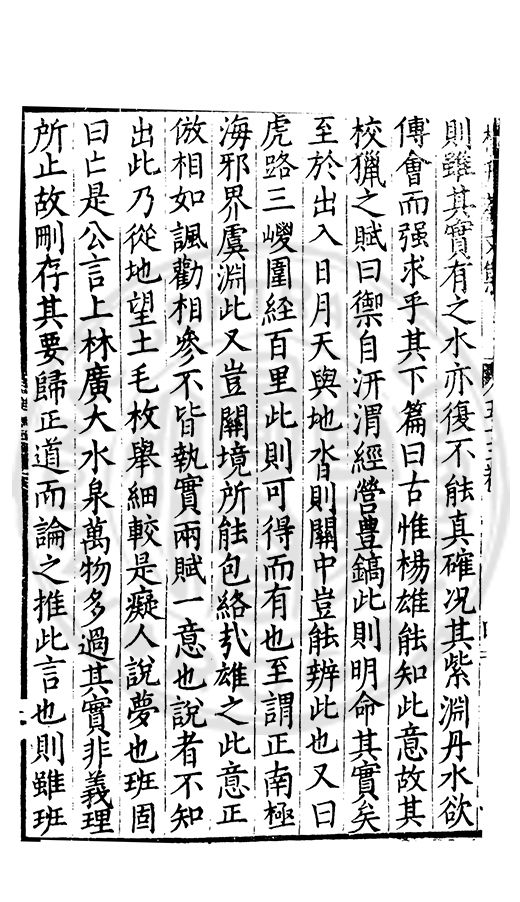 則雖其實有之水亦復不能真確况其紫淵丹水欲
傅會而强求乎其下篇曰古惟楊雄能知此意故其
校獵之賦曰禦自汧渭經營豐鎬此則明命其實矣
至於出入日月天與地沓則關中豈能辨此也又曰
虎路三嵕圍經百里此則可得而有也至謂正南極
海邪界虞淵此又豈關境所能包絡㢤雄之此意正
倣相如諷勸相參不皆執實兩賦一意也說者不知
出此乃從地望土毛枚舉細較是癡人說夢也班固
曰亡是公言上林廣大水泉萬物多過其實非義理
所止故刪存其要歸正道而論之推此言也則雖班